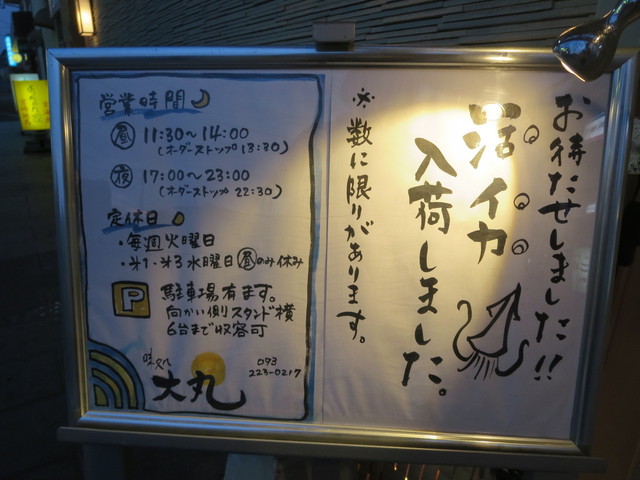 お待たせしました!!
活イカ
入荷しました。
※数に限りがあります。
営業時間
昼 11:30〜14:00
(オーダーストップ 13:30)
夜 17:00〜23:00
(オーダーストップ 22:30)
定休日
・毎週火曜日
・第1・第3水曜日昼のみ休み
P 駐車場有ます。
向かい側スタンド横
6台まで収容可
味処
大丸
093
223-0217